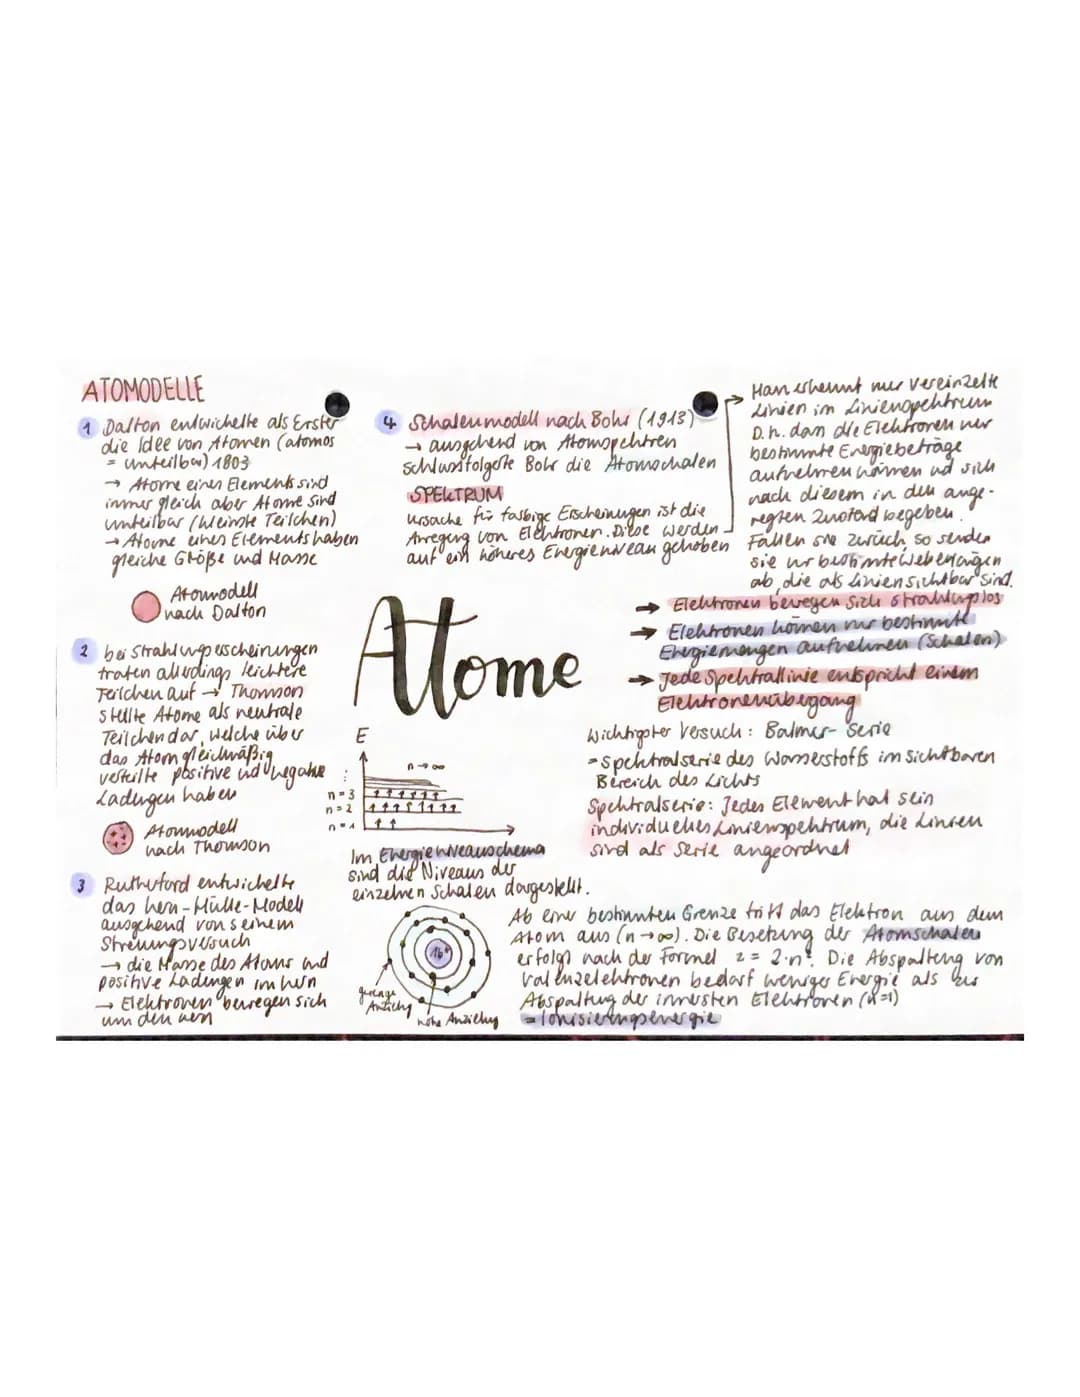 ATOMODELLE
1 Dalton entwickelte als Erster
die Idee von Atomen (atomos
= unteilbar) 1803
→ Atome eines Elements sind
immer gleich aber Atome sind
unteilbar (kleinste Teilchen)
→ Atome eines Elements haben
gleiche Größe und Masse
Atomodell
nach Dalton
2 bei Strahlungserscheinungen
traten allerdings leichtere
Teilchen auf → Thomson
stellte Atome als neutrale
Teilchen dar, welche über
das Atom gleichmäßig
verteilte positive und negative
Ladungen haben
Atommodell
nach Thomson
3 Rutherford entwickelte
das Kern-Hülle-Modell
ausgehend von seinem
Streuungsversuch
→ die Masse des Atoms und
positive Ladungen im Kern
→ Elektronen bewegen sich
um den Kern
4 Schalenmodell nach Bohr (1913)
→ ausgehend von Atomspektren
schlussfolgerte Bohr die Atomschalen
SPEKTRUM
Ursache für farbige Erscheinungen ist die
Anregung von Elektronen. Diese werden
auf ein höheres Energieniveau gehoben
→ Man erkennt nur vereinzelte
Linien im Linienspektrum
D.h. dass die Elektronen nur
bestimmte Energiebeträge
aufnehmen können und sich
nach diesem in den ange-
regten Zustand begeben.
Fallen sie zurück, so senden
sie nur bestimmte Wellenlängen
ab, die als Linien sichtbar sind.
→ Elektronen bewegen sich strahlungslos
→ Elektronen können nur bestimmte
Energiemengen aufnehmen (Schalen)
→ Jede Spektrallinie entspricht einem
Elektronenübergang
Atome
Wichtigster Versuch: Balmer-Serie
= Spektralserie des Wasserstoffs im sichtbaren
Bereich des Lichts
Spektralserie: Jedes Element hat sein
individuelles Linienspektrum, die Linien
sind als Serie angeordnet
E
n→∞
n=3
n=2
n=1
Im Energieniveauschema
sind die Niveaus der
einzelnen Schalen dargestellt.
16+
geringe
Anziehg
hohe Anziehung
Ab einer bestimmten Grenze tritt das Elektron aus dem
Atom aus (n→∞). Die Besetzung der Atomschalen
erfolgt nach der Formel z = 2·n². Die Abspaltung von
Valenzelektronen bedarf weniger Energie als zur
Abspaltung der innersten Elektronen (n=1)
= Ionisierungsenergie